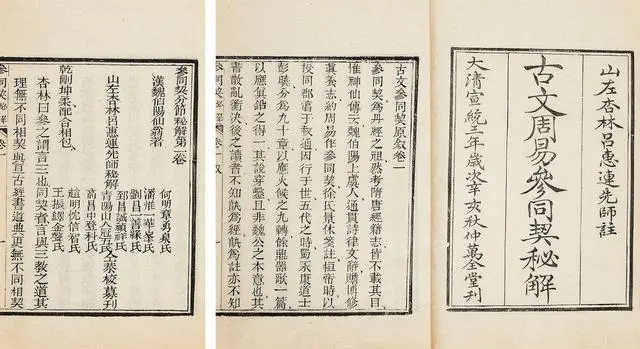 山左杏林呂惠連先師註
古文周易參同契秘解
大清宣統三年歲次辛亥秋仲萬全堂刊
古文參同契原敘卷一
參同契爲丹經之祖然考隋唐經籍志皆不載其目
惟神仙傳云魏伯陽上虞人通貫詩律文辭贍博修
眞養志約周易作參同契徐氏景休箋註桓帝時以
授同郡淳于叔通因行于世五代之時蜀永康道士
彭曉分爲九十章以應火候之九轉餘鼎器歌一篇
以應眞鉛之得一其說穿鑿且非魏公之本意也其
書散亂衡決後之讀者不知孰爲經孰爲註亦不知
參同契秘解 卷一 敘
參同契分節秘解第一卷
漢魏伯陽仙翁著
山左杏林呂惠連先師秘解
何明章勇泉氏
潘一華峯氏
劉昌一善緣氏
到昌誠禎祥氏
青陽山人冠五氏仝叅校募刊
高昌中登科氏
趙明忱信智氏
王振鐸金聲氏
乾剛坤柔配合相包
杏林曰參之謂言三也同契者言與三教之道其
理無不同相契與亘古經書道典更無不同相契
參同契秘解 卷一